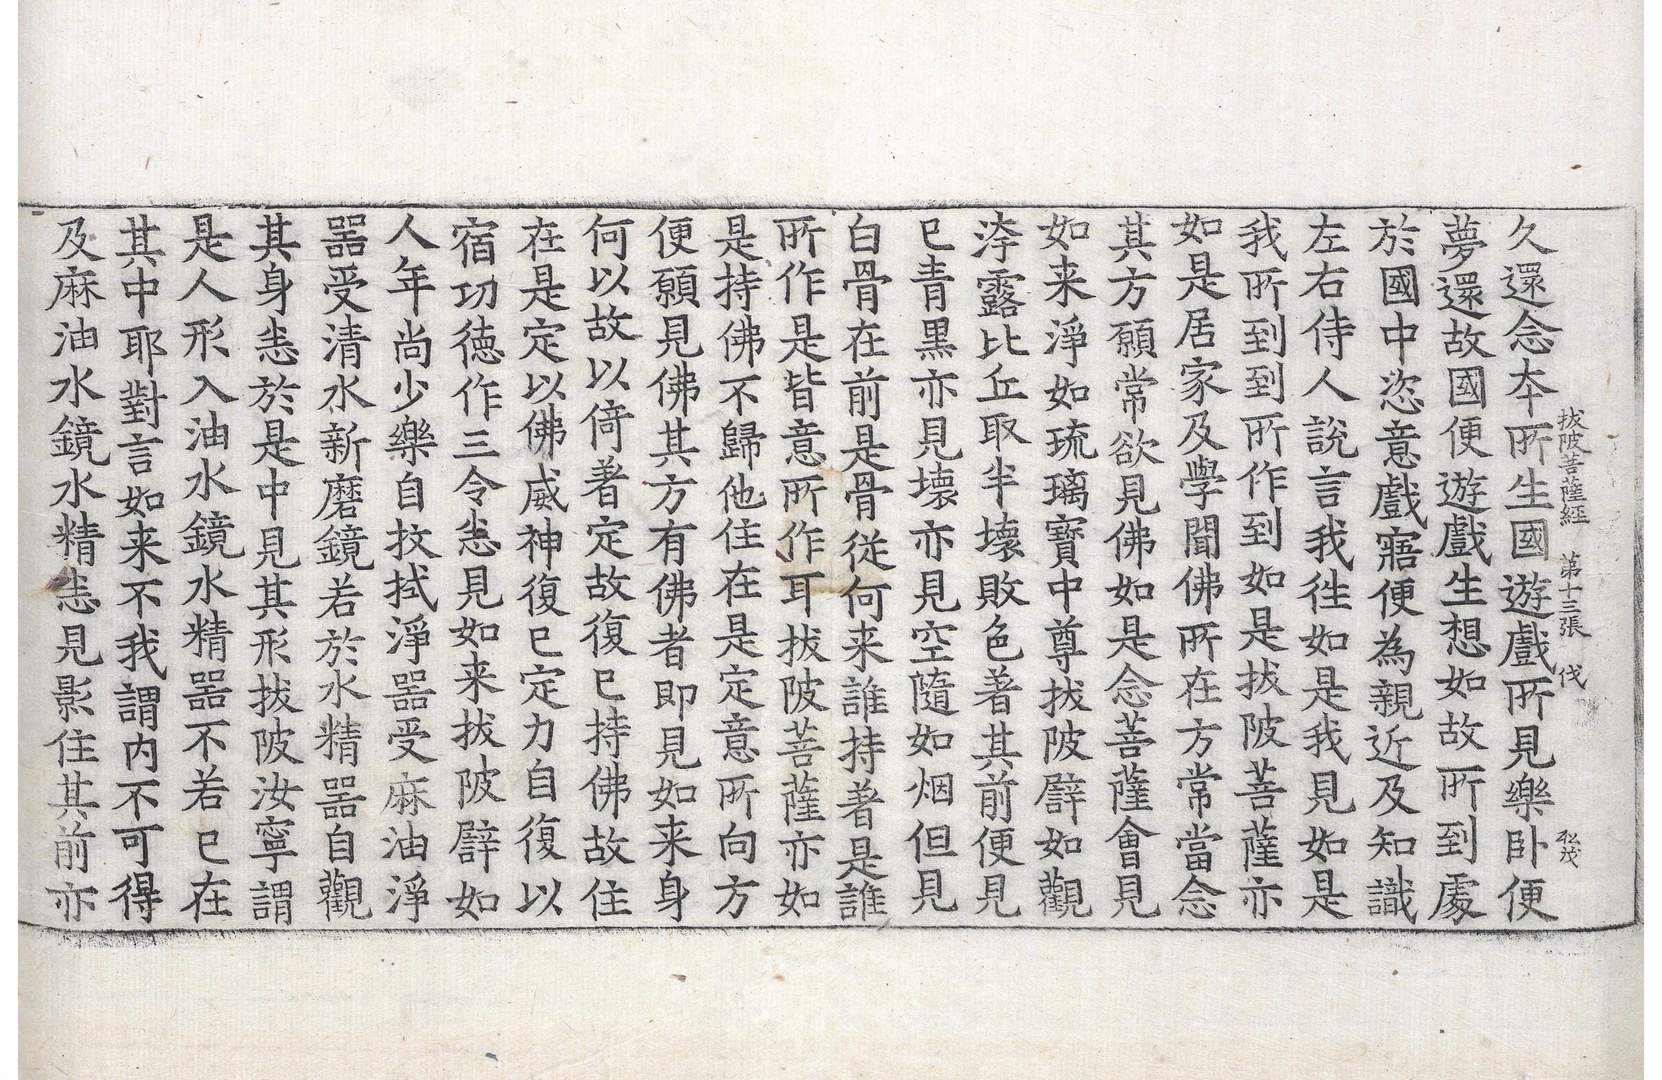 拔陂菩薩經 第十三張 伐 松茂
久還念本所生國遊戲所見樂卧便
夢還故國便遊戲生想如故所到處
於國中恣意戲寤便為親近及知識
左右侍人說言我徃如是我見如是
我所到到所作到如是拔陂菩薩亦
如是居家及學聞佛所在方常當念
其方願常欲見佛如是念菩薩會見
如来淨如琉璃寶中尊拔陂譬如觀
淬露比丘取半壞敗色著其前便見
已青黑亦見壞亦見空隨如烟但見
白骨在前是骨從何来誰持著是誰
所作是皆意所作耳拔陂菩薩亦如
是持佛不歸他住在是定意所向方
便願見佛其方有佛者即見如来身
何以故以倚著定故復已持佛故住
在是定以佛威神復已定力自復以
宿功德作三令恙見如来拔陂譬如
人年尚少樂自抆拭淨器受麻油淨
器受清水新磨鏡若於水精器自觀
其身恙於是中見其形拔陂汝寧謂
是人形入油水鏡水精器不若已在
其中耶對言如来不我謂内不可得
及麻油水鏡水精恙見影住其前亦